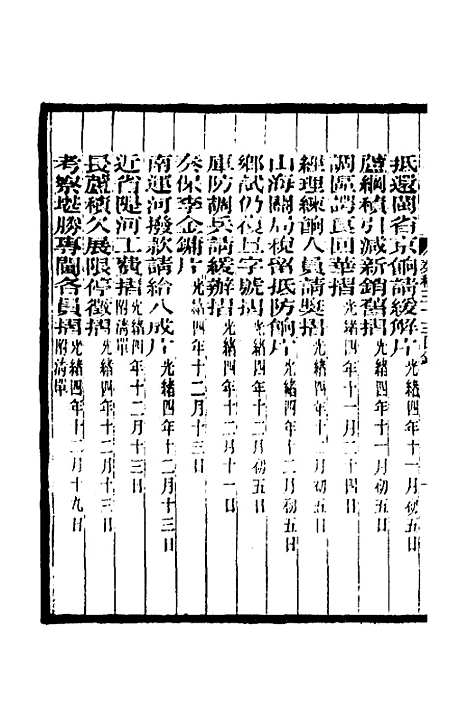 抵還閩省京餉請緩解片光緒四年十一月初五日
蘆綱積引減新銷舊摺光緒四年十一月初五日
調區調良回華摺光緒四年十一月二十四日
經理練餉人員請獎摺光緒四年十二月初五日
山海關局稅留抵防餉片光緒四年十二月初五日
鄉試仍復旦字號摺光緒四年十二月初五日
庫防調兵請緩辦摺光緒四年十二月十一日
奏保李金鏞片光緒四年十二月十三日
南運河撥款請給八成片光緒四年十二月十三日
近省隄河工費摺附清單光緒四年十二月十三日
長蘆積欠展限停徵摺光緒四年十二月十三日
考察堪勝專閫各員摺附清單光緒四年十二月十九日